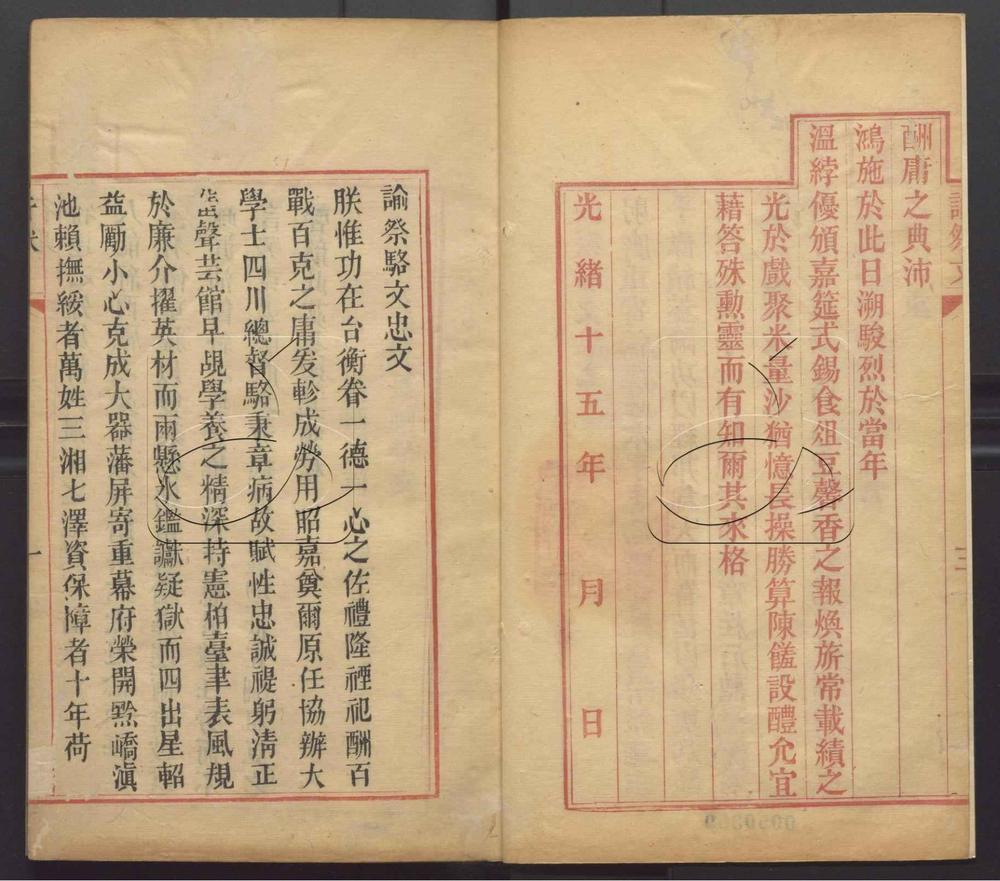 酬庸之典沛
鴻施於此日溯駿烈於當年
溫綍優頒嘉筵式錫食俎豆馨香之報煥旂常載績之
光於戲聚米量沙猶憶長操勝算陳饎設醴允宜
藉答殊勳靈而有知爾其來格
光緒十五年 月 日
諭祭駱文忠文
朕惟功在台衡眷一德一心之佐禮隆禋祀酬百
戰百克之庸发軫成勞用昭嘉奠爾原任協辦大
學士四川總督駱秉章病故賦性忠誠禔躬清正
蜚聲芸館早覘學養之精深持憲柏臺聿表風規
於廉介擢英材而兩懸水鑑讞疑獄而四出星軺
益勵小心克成大器藩屏寄重幕府榮開黔嶠滇
池賴撫綏者萬姓三湘七澤資保障者十年荷
一